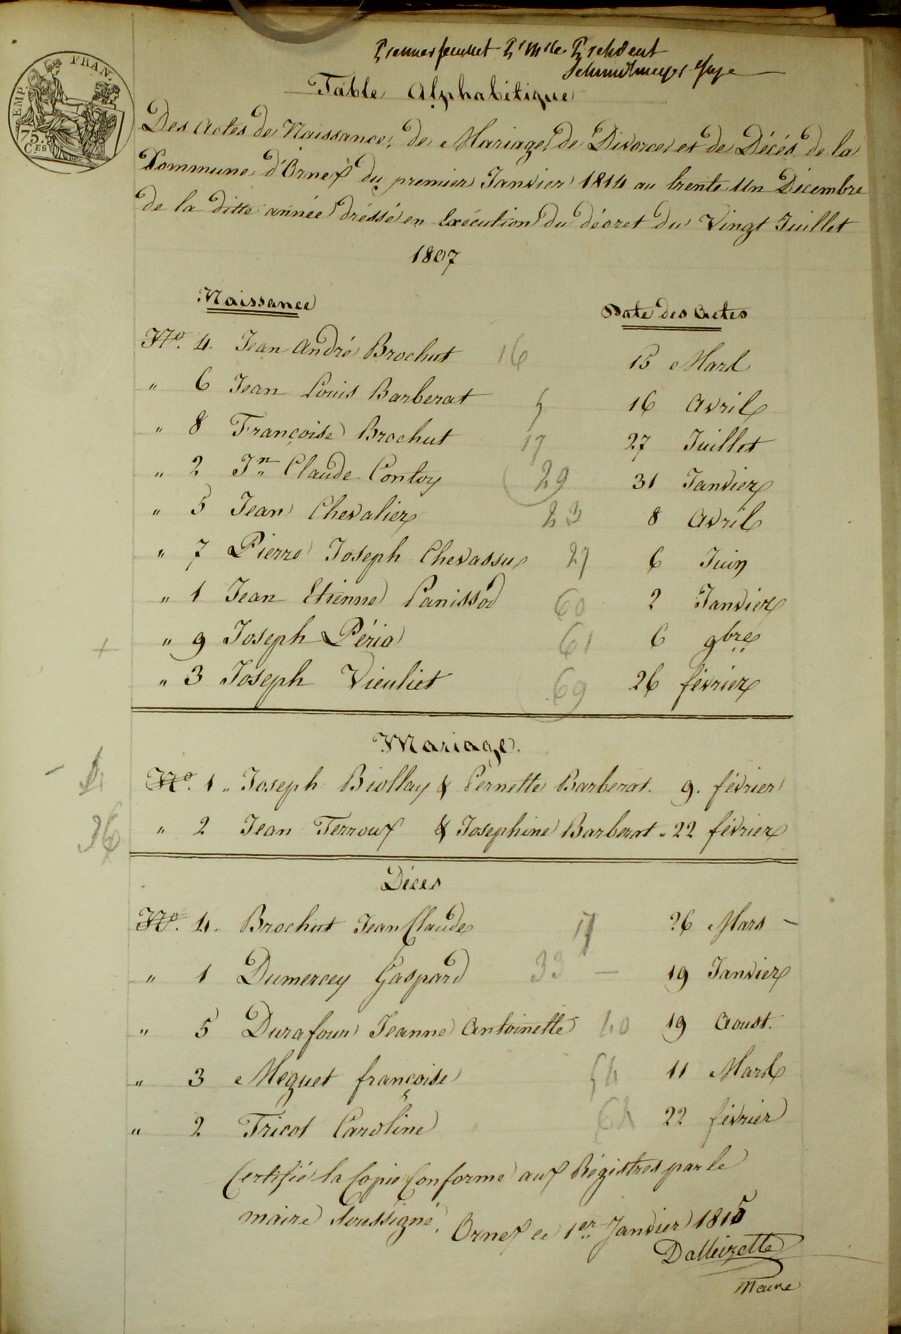 EMP. FRAN.
75.
CES
Premier feuillet Pr Mr le Président
Schmidtmeyer Juge
Table Alphabétique
Des Actes de Naissance, de Mariage, de Divorce et de Décés de la
Commune d'Ornex du premier Janvier 1814 au trente un Décembre
de la ditte année dréssé en Exécution du décret du Vingt Juillet
1807
Naissance Date des Actes
No. 4. Jean André Brochut 16 15 Mars
" 6 Jean Louis Barberat 5 16 Avril
" 8 Françoise Brochut 17 27 Juillet
" 2 Jn Claude Contoy 29 31 Janvier
" 5 Jean Chevalier 23 8 Avril
" 7 Pierre Joseph Chevassu 27 6 Juin
" 1 Jean Etienne Panissod 60 2 Janvier
+ " 9 Joseph Péria 61 6 9bre
" 3 Joseph Vieuliet 69 26 février
Mariage
No. 1 " Joseph Biollay & Pernette Barberat. 9. février
36 " 2 Jean Terroux & Josephine Barberat - 22 février
Décés
No. 4. Brochut Jean Claude 17 26 Mars -
" 1 Dumercey Gaspard 33 — 19 Janvier
" 5 Durafour Jeanne Antoinette 40 19 Aoust.
" 3 Meguet françoise 54 11 Mars
" 2 Tricot Caroline 64 22 février
Certifié la Copie Conforme aux Régistres par le
maire Soussigné. Ornex le 1er Janvier 1815
Dalleizette
Maire